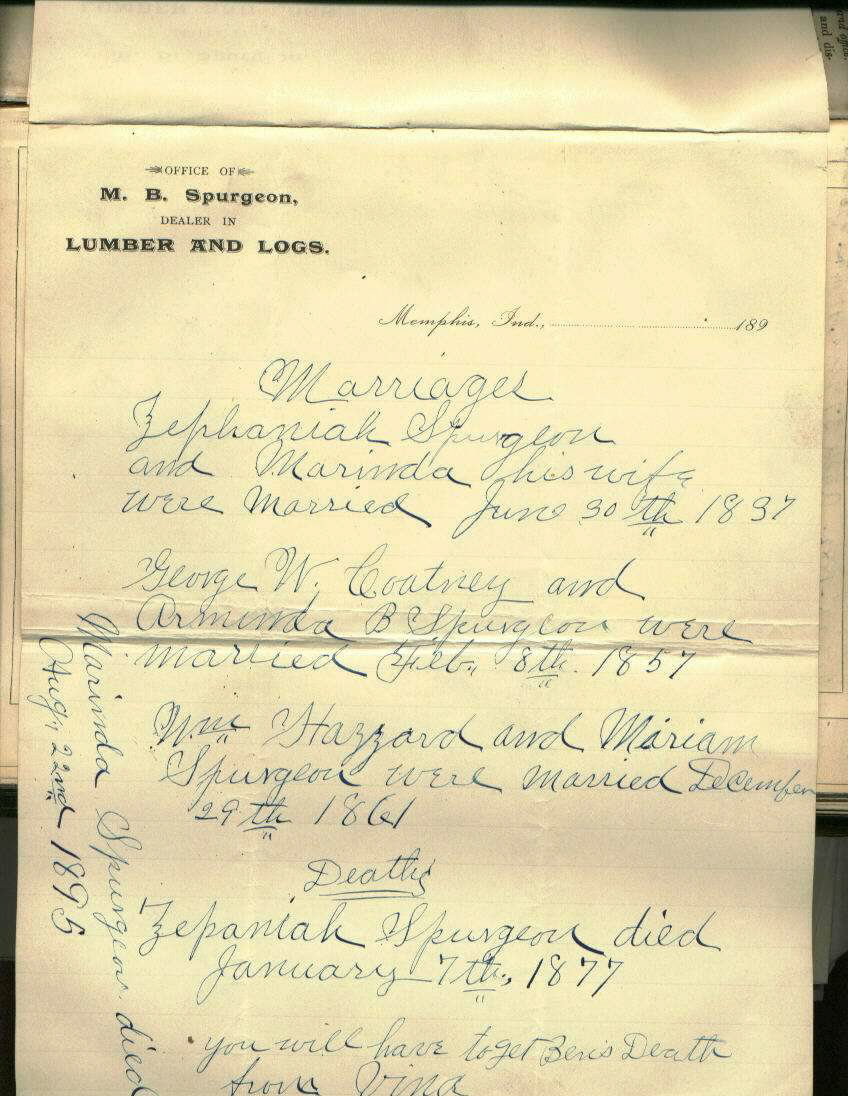 OFFICE OF
M. B. Spurgeon,
DEALER IN
LUMBER AND LOGS.
Memphis, Ind., 189
Marriages
Zephaniah Spurgeon
and Marinda his wife
were Married June 30th 1837
George W. Coatney and
Arminda B Spurgeon were
married Feb. 8th. 1857
Wm Hazzard and Mariam
Spurgeon were married December
29th 1861
Deaths
Zepaniah Spurgeon died
January 7th, 1877
you will have to get Bens Death
from Vina
Marinda Spurgeon died
Aug, 22nd 1895
and dis-